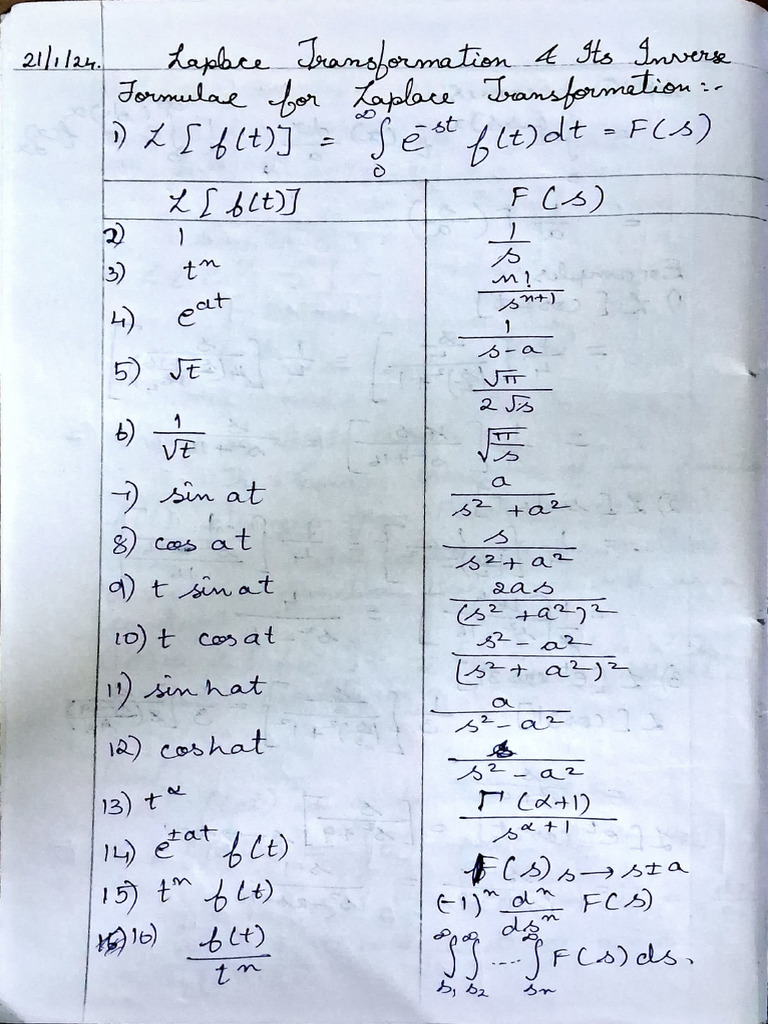 21/1/24. Laplace Transformation & Its Inverse
Formulae for Laplace Transformation:-
1) L[f(t)] = ∫₀^∞ e^-st f(t)dt = F(s)
L[f(t)] F(s)
2) 1 1/s
3) t^n n!/s^(n+1)
4) e^at 1/(s-a)
5) √t √π/(2√s)
6) 1/√t √(π/s)
7) sin at a/(s² + a²)
8) cos at s/(s² + a²)
9) t sin at 2as/(s² + a²)²
10) t cos at (s² - a²)/(s² + a²)²
11) sin hat a/(s² - a²)
12) cos hat s/(s² - a²)
13) t^α Γ(α+1)/s^(α+1)
14) e^±at f(t) F(s) s→s±a
15) t^n f(t) (-1)^n d^n/ds^n F(s)
16) f(t)/t^n ∫_s₁^∞ ∫_s₂^∞ .... ∫_sn^∞ F(s) ds.